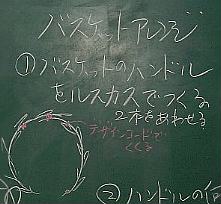 バスケットアレンジ
①バスケットのハンドル
をルスカスでつくる。
2本をあわせる
デザインコードで
くくる
②ハンドルの